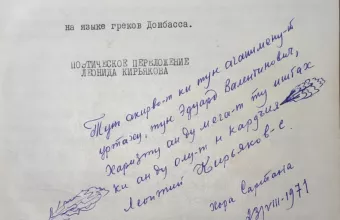 на языке греков Донбасса.
ПОЭТИЧЕСКОЕ ПЕРЕЛОЖЕНИЕ
ЛЕОНИДА КИРЬЯКОВА
Тут акирво-т ки тун агапимену-т
уртаху, тун Эдуард Валентинович,
Харизту ан ду мега-т ту
ки ан ду олу-т н кардѝя
Леонтий Кирьяков-с
Хора Сартана
VIII-1971